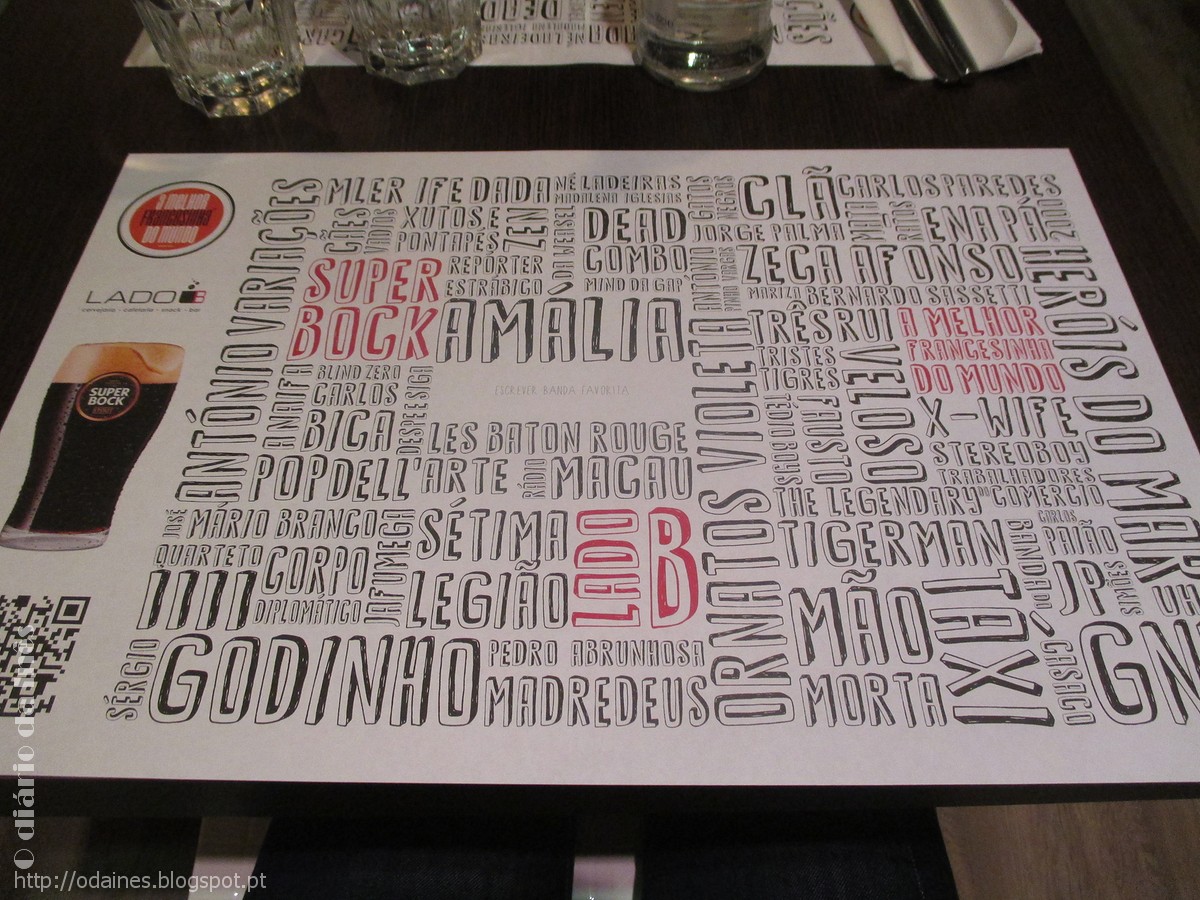 A MELHOR
FRANCESINHA
DO MUNDO
LADO B
cervejaria - cafetaria - snack - bar
SUPER
BOCK
ANTÓNIO VARIAÇÕES
MLER IFE DADA
NÉ LADEIRAS
MADALENA IGLESIAS
GATOS
NEGROS
CLÃ
CARLOS PAREDES
XUTOS E
PONTAPÉS
ZEN
DA WEASEL
DEAD
COMBO
MIND DA GAP
JORGE PALMA
ENA PÁ
2000
SUPER
BOCK
REPÓRTER
ESTRÁBICO
AMÁLIA
ANTÓNIO
PINHO VARGAS
ZECA AFONSO
MARIZA
BERNARDO SASSETTI
HERÓIS DO MAR
TRÊS
TRISTES
TIGRES
RUI VELOSO
A MELHOR
FRANCESINHA
DO MUNDO
BLIND ZERO
CARLOS
BICA
A NAIFA
DESPE E SIGA
ESCREVER BANDA FAVORITA
LES BATON ROUGE
POP DELL'ARTE
RÁDIO
MACAU
ORNATOS VIOLETA
FAUSTO
X-WIFE
STEREOBOY
TRABALHADORES
DO COMÉRCIO
THE LEGENDARY
TIGERMAN
JOSÉ
MÁRIO BRANCO
QUARTETO
1111
CORPO
DIPLOMÁTICO
JAFUMEGA
SÉTIMA
LEGIÃO
LADO
B
CARLOS
PAIÃO
BANDA DO
CASACO
JP
SIMÕES
MÃO
MORTA
TÁXI
SÉRGIO
GODINHO
PEDRO ABRUNHOSA
MADREDEUS
GN
O diário da Inês
http://odaines.blogspot.pt